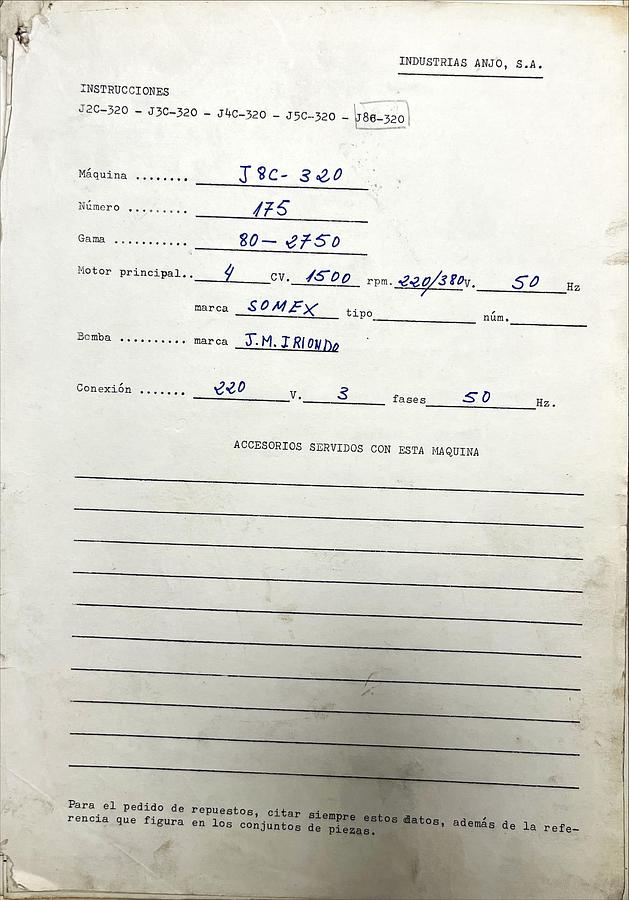 INDUSTRIAS ANJO, S.A.
INSTRUCCIONES
J2C-320 - J3C-320 - J4C-320 - J5C-320 - J8C-320
Máquina ........ J8C-320
Número ......... 175
Gama ........... 80-2750
Motor principal.. 4 CV. 1500 rpm. 220/380 V. 50 Hz
marca SOMEX tipo núm.
Bomba .......... marca J.M.IRIONDO
Conexión ....... 220 V. 3 fases 50 Hz.
ACCESORIOS SERVIDOS CON ESTA MAQUINA
Para el pedido de repuestos, citar siempre estos datos, además de la refe-
rencia que figura en los conjuntos de piezas.